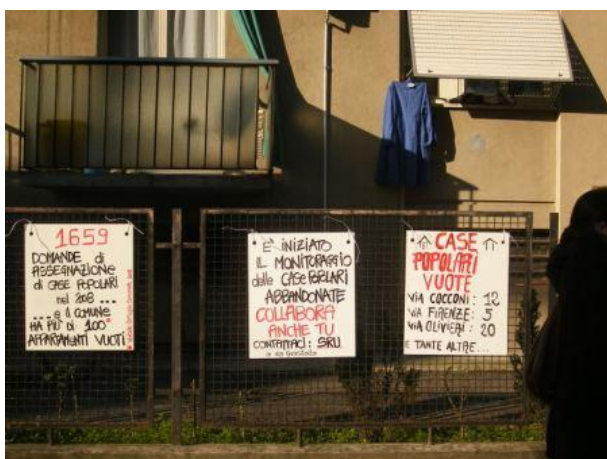 1659
DOMANDE di
ASSEGNAZIONE
di CASE POPOLARI
nel 2013 ...
... e il COMUNE
HA PIÙ DI 100
APPARTAMENTI VUOTI
E' INIZIATO
IL MONITORAGGIO
delle CASE POPOLARI
ABBANDONATE
COLLABORA
ANCHE TU
CONTATTACI: SRU
CASE
POPOLARI
VUOTE
VIA COCCONI: 12
VIA FIRENZE: 5
VIA OLIVIERI: 20
E TANTE ALTRE...